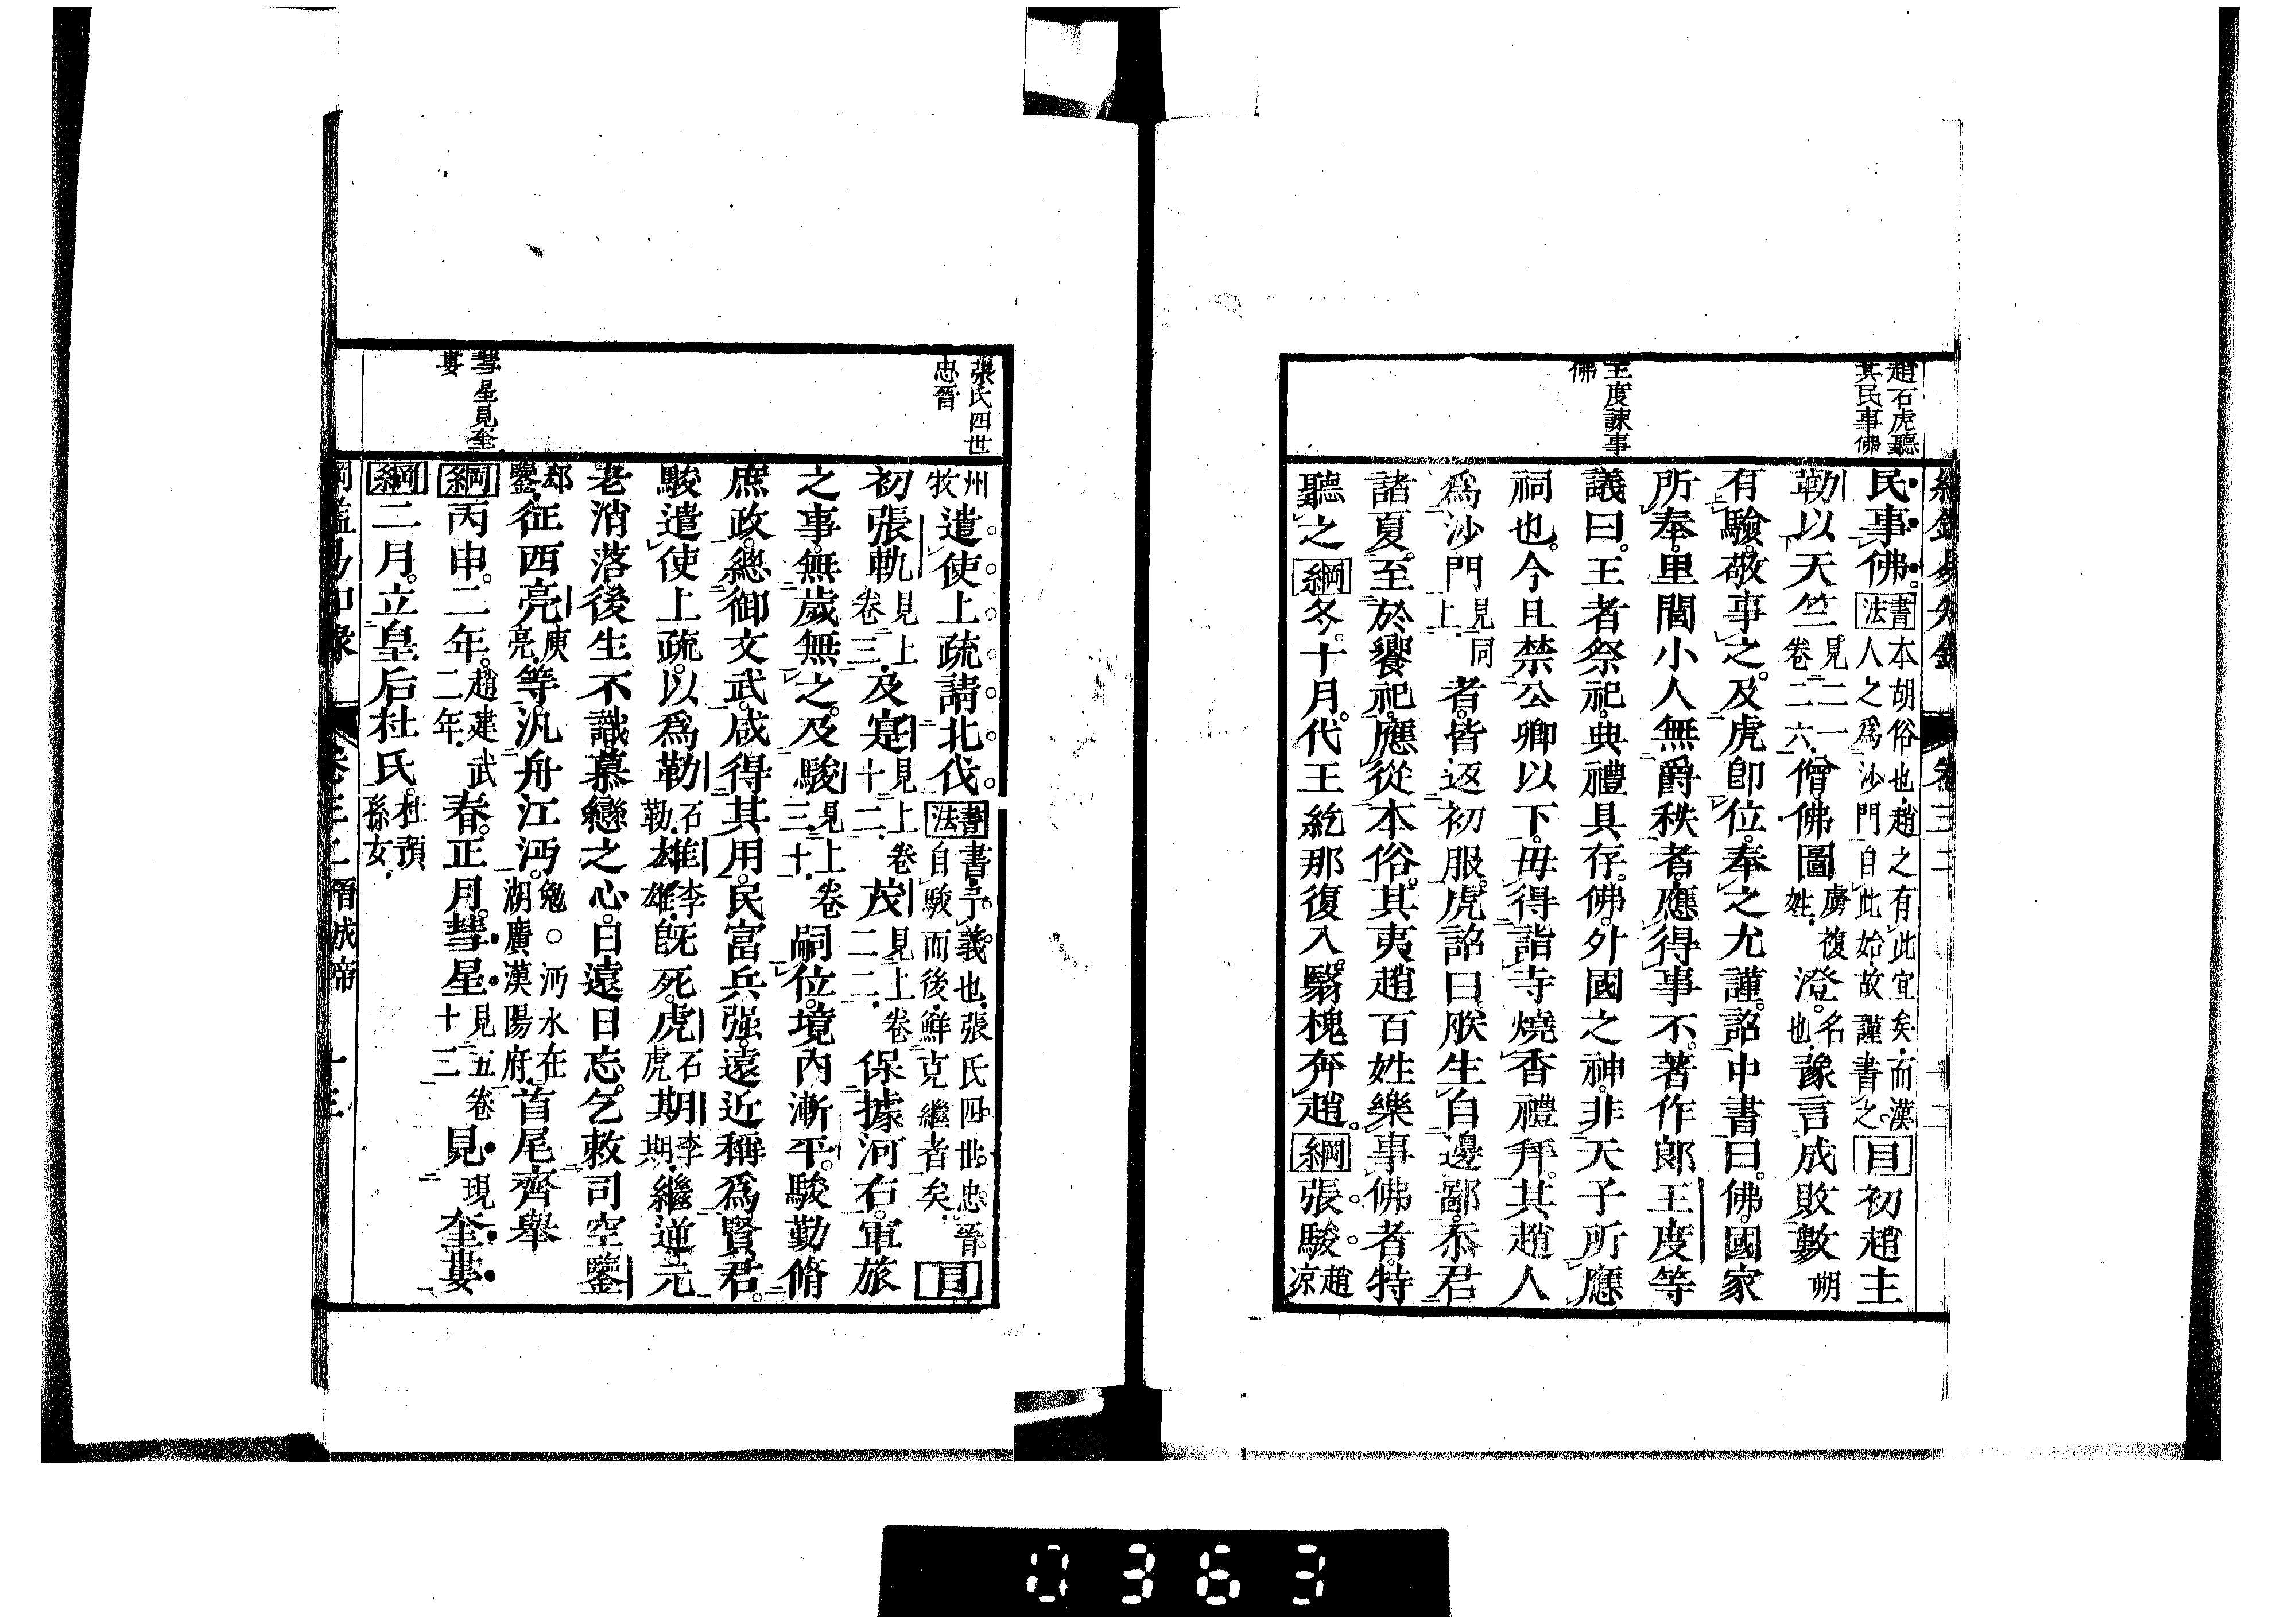 趙石虎聽
其民事佛
王度諫事
佛
民事佛。書法本胡俗也。趙之有此宜矣。而漢人之爲沙門自此始。故謹書之。目初趙主
勒以天竺見二一卷二六。僧佛圖澄姓。虜複名也。豫言成敗數朔
有驗。敬事之。及虎卽位。奉之尤謹。詔中書曰。佛。國家
所奉。里閭小人無爵秩者。應得事不。著作郎王度等
議曰。王者祭祀。典禮具存。佛。外國之神。非天子所應
祠也。今且禁公卿以下。毋得詣寺燒香禮拜。其趙人
爲沙門見同上。者。皆返初服。虎詔曰。朕生自邊鄙。忝君
諸夏。至於饗祀。應從本俗。其夷趙百姓樂事佛者。特
聽之綱冬。十月。代王紇那復入。翳槐奔趙。綱張駿。趙涼
張氏四世
忠晉
彗星見奎
婁
州牧遣使上疏請北伐。書法書。予義也。張氏四世。忠晉。自駿而後。鮮克繼者矣。目
初張軌見上卷三。及寔見上卷十二。茂見上卷二二。保據河右。軍旅
之事。無歲無之。及駿見上卷三十。嗣位。境內漸平。駿勤脩
庶政。總御文武。咸得其用。民富兵强。遠近稱爲賢君。
駿遣使上疏。以爲勒石勒。雄李雄。旣死。虎石虎期李期。繼逆。元
老消落。後生不識。慕戀之心。日遠日忘。乞敕司空鑒
郄鑒。征西亮庾亮。等。汎舟江沔。勉。○沔水在湖廣漢陽府。首尾齊舉
綱丙申。二年。趙建武二年。春。正月。彗星見五卷十三見現奎婁
綱二月。立皇后杜氏。杜預孫女。
0363